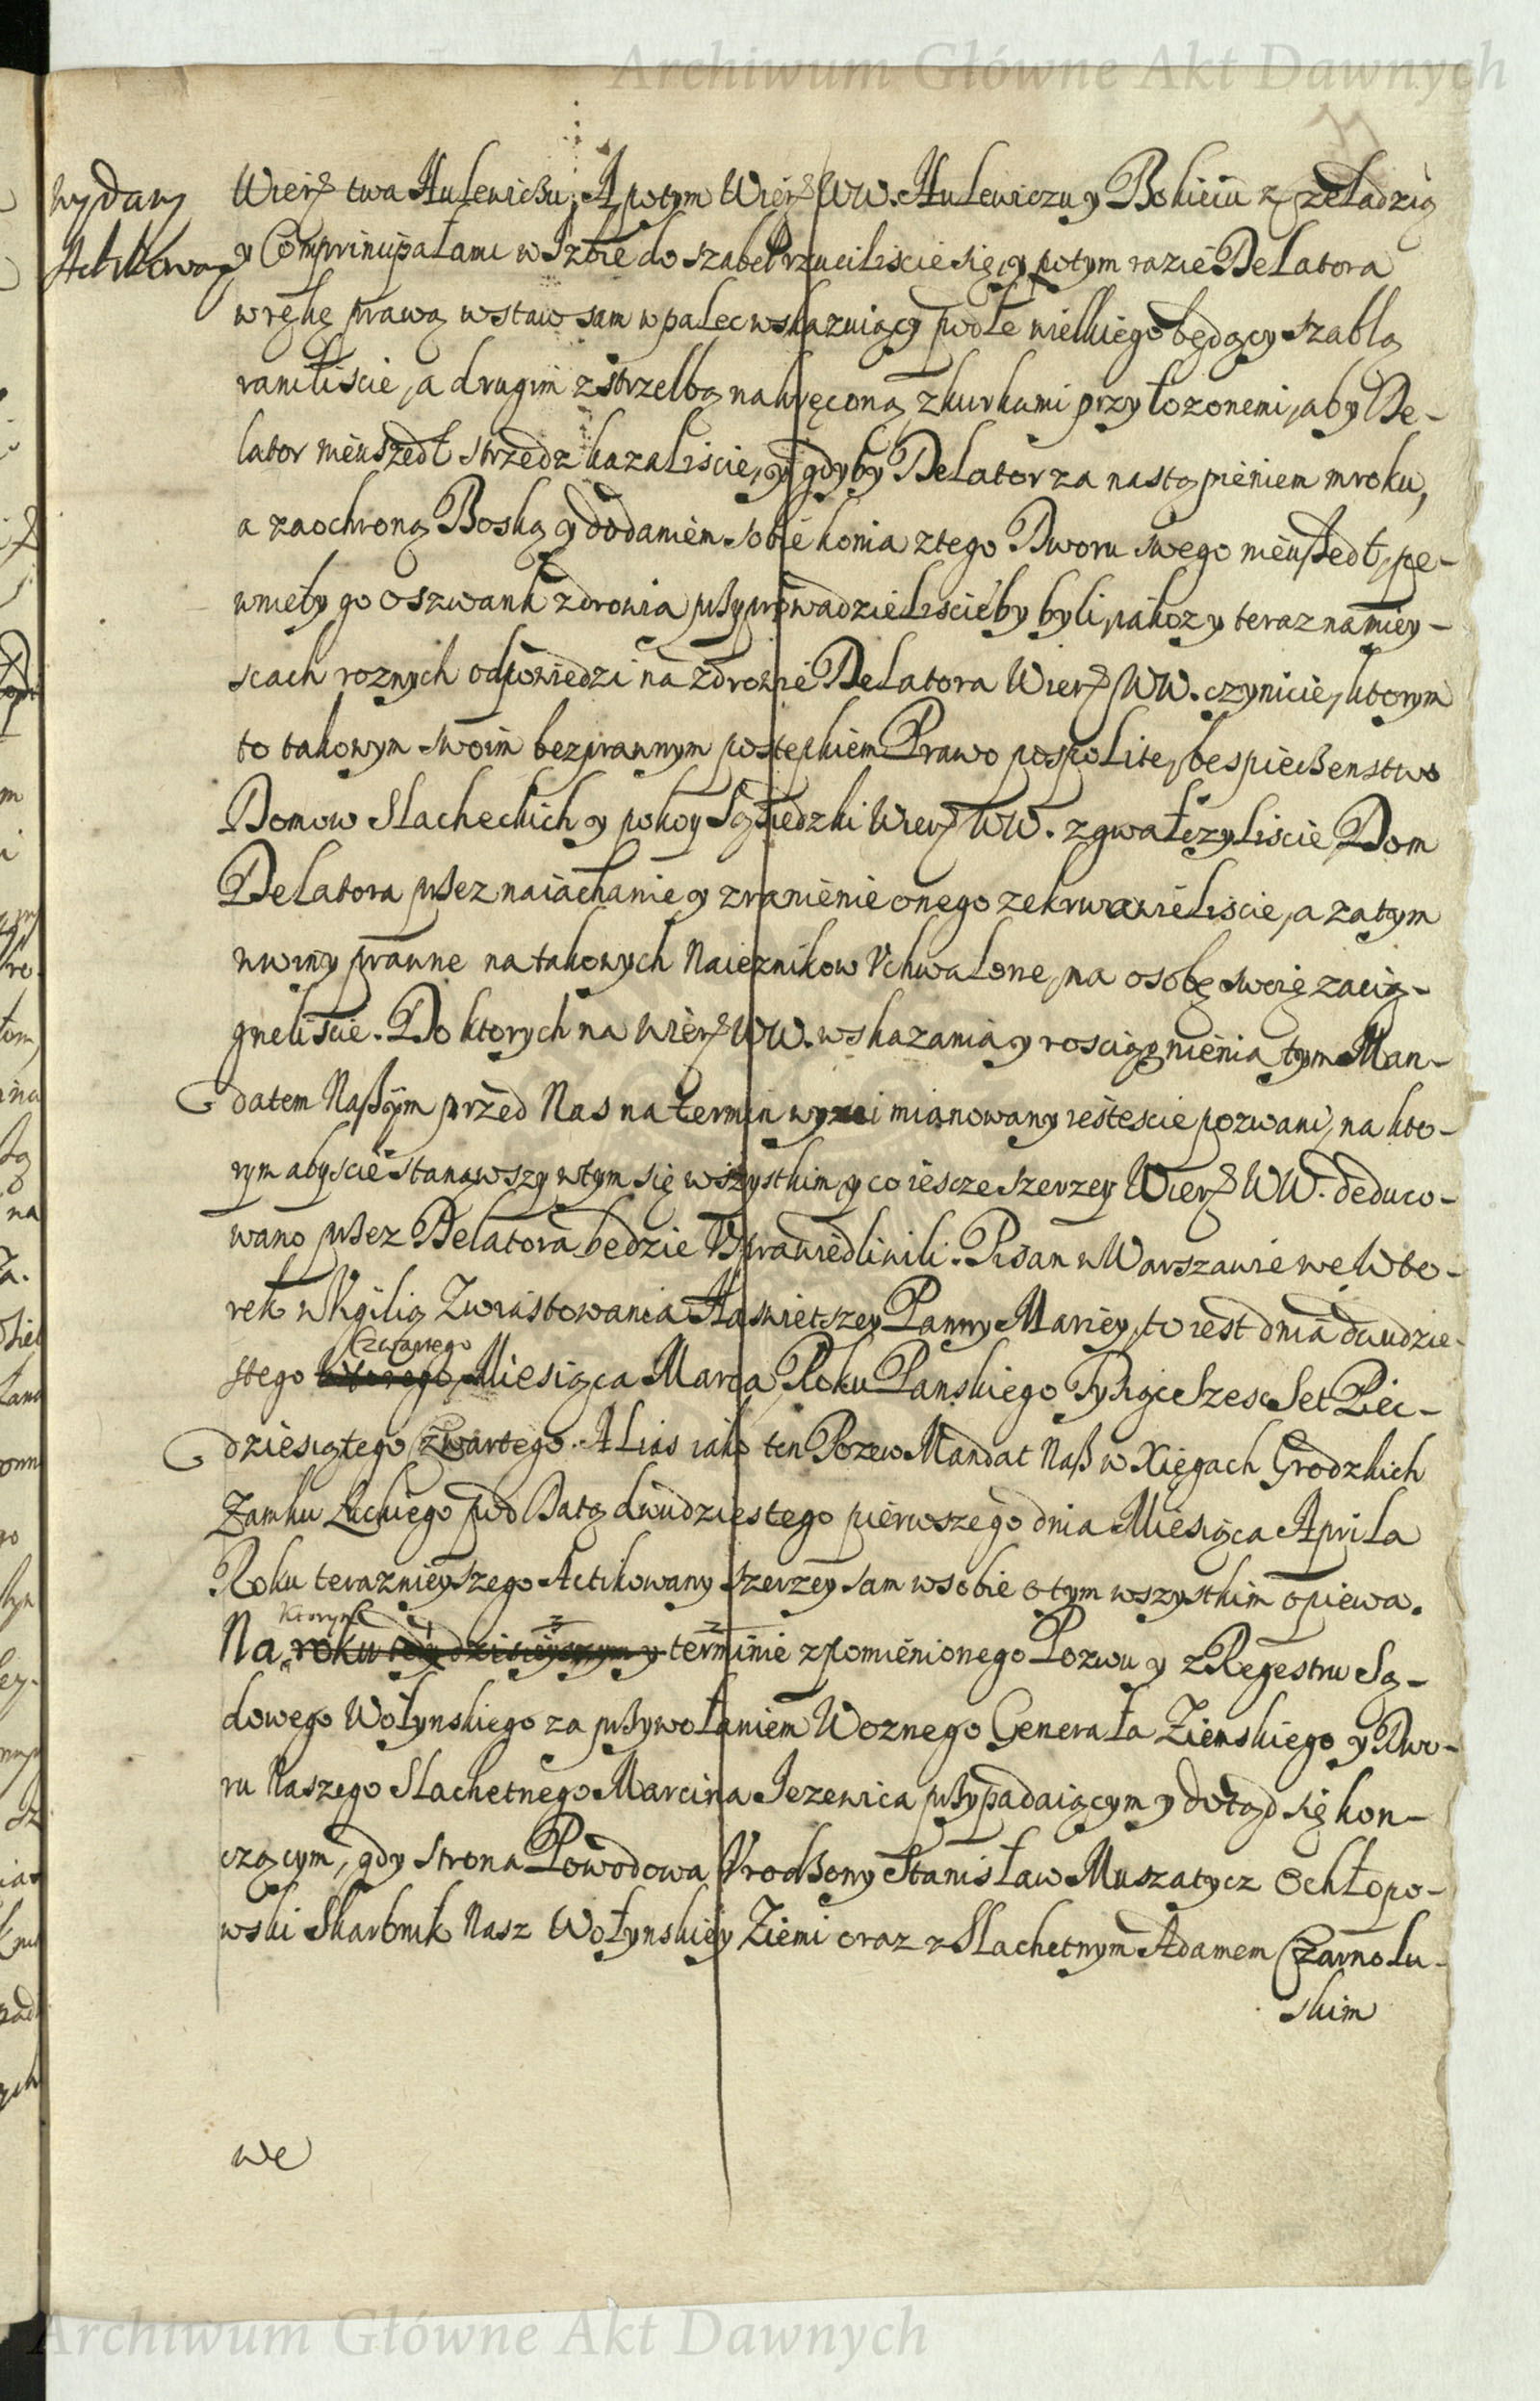 Archiwum Główne Akt Dawnych
wydany
Actikowany
Wierz twa Hulewiczu, A potym Wierz WW. Hulewiczu y Bokieiu z czeladzią
y Comprincipałami w Izbie do szabel rzuciliscie się, y potym razie Delatora
w rękę prawą w staw sam w palec wskazuiący podle wielkiego będący szablą
raniliscie, a drugim z strzelbą nakręconą z kurkami przyłozonemi, aby De-
lator nieuszedł strzedz kazaliscie, y gdyby Delator za nastąpieniem mroku,
a za ochroną Boską y dodaniem sobie konia z tego Dworu swego nieuszedł, pe-
wnieby go o szwank zdrowia przyprowadzieliscie by byli, iakoz y teraz na miey-
scach roznych odpowiedzi na zdrowie Delatora Wierz WW. czynicie, ktorym
to takowym swoim bezprawnym postępkiem Prawo pospolite, bespieczenstwo
Domow Slacheckich y pokoy Sąsiedzki Wierz WW. zgwałczyliscie Dom
Delatora przez naiachanie y zranienie onego zekrwawieliscie, a zatym
w winy prawne na takowych Naieznikow Vchwalone, na osobę swoię zacią-
gneliscie. Do ktorych na Wierz WW. wskazania y rosciągnienia tym Man-
datem Naszym przed Nas na termin wyzei mianowany iestescie pozwani, na kto-
rym abyscie stanąwszy w tym się wszystkim y co iescze szerzey Wierz WW. deduco-
wano przez Delatora bedzie Vsprawiedliwili. Pisan w Warszawie we Wto-
rek w Vigilią Zwiastowania Naswietszey Panny Mariey, to iest dnia dwudzie-
Czwartego
stego wtorego Miesiąca Marca Roku Panskiego Tysiąc Szesc Set Piec-
dziesiątego Czwartego. Alias iako ten Pozew Mandat Nasz w Xięgach Grodzkich
Zamku Łuckiego pod Datą dwudziestego pierwszego dnia Miesiąca Aprila
Roku teraznieyszego Actikowany szerzey sam w sobie o tym wszystkim opiewa.
Ktorym
Na roku tedy dzisieyszym y terminie z pomienionego Pozwu y z Regestru Są-
dowego Wołynskiego za przywołaniem Woznego Generała Ziemskiego y Dwo-
ru Naszego Slachetnego Marcina Jezewica przypadaiącym y dotąd się kon-
czącym, gdy strona Powodowa Vrodzony Stanisław Muszatycz Ochłopo-
wski Skarbnik Nasz Wołynskiey Ziemi oraz z Slachetnym Adamem Czarnolu-
skim
we
Archiwum Główne Akt Dawnych